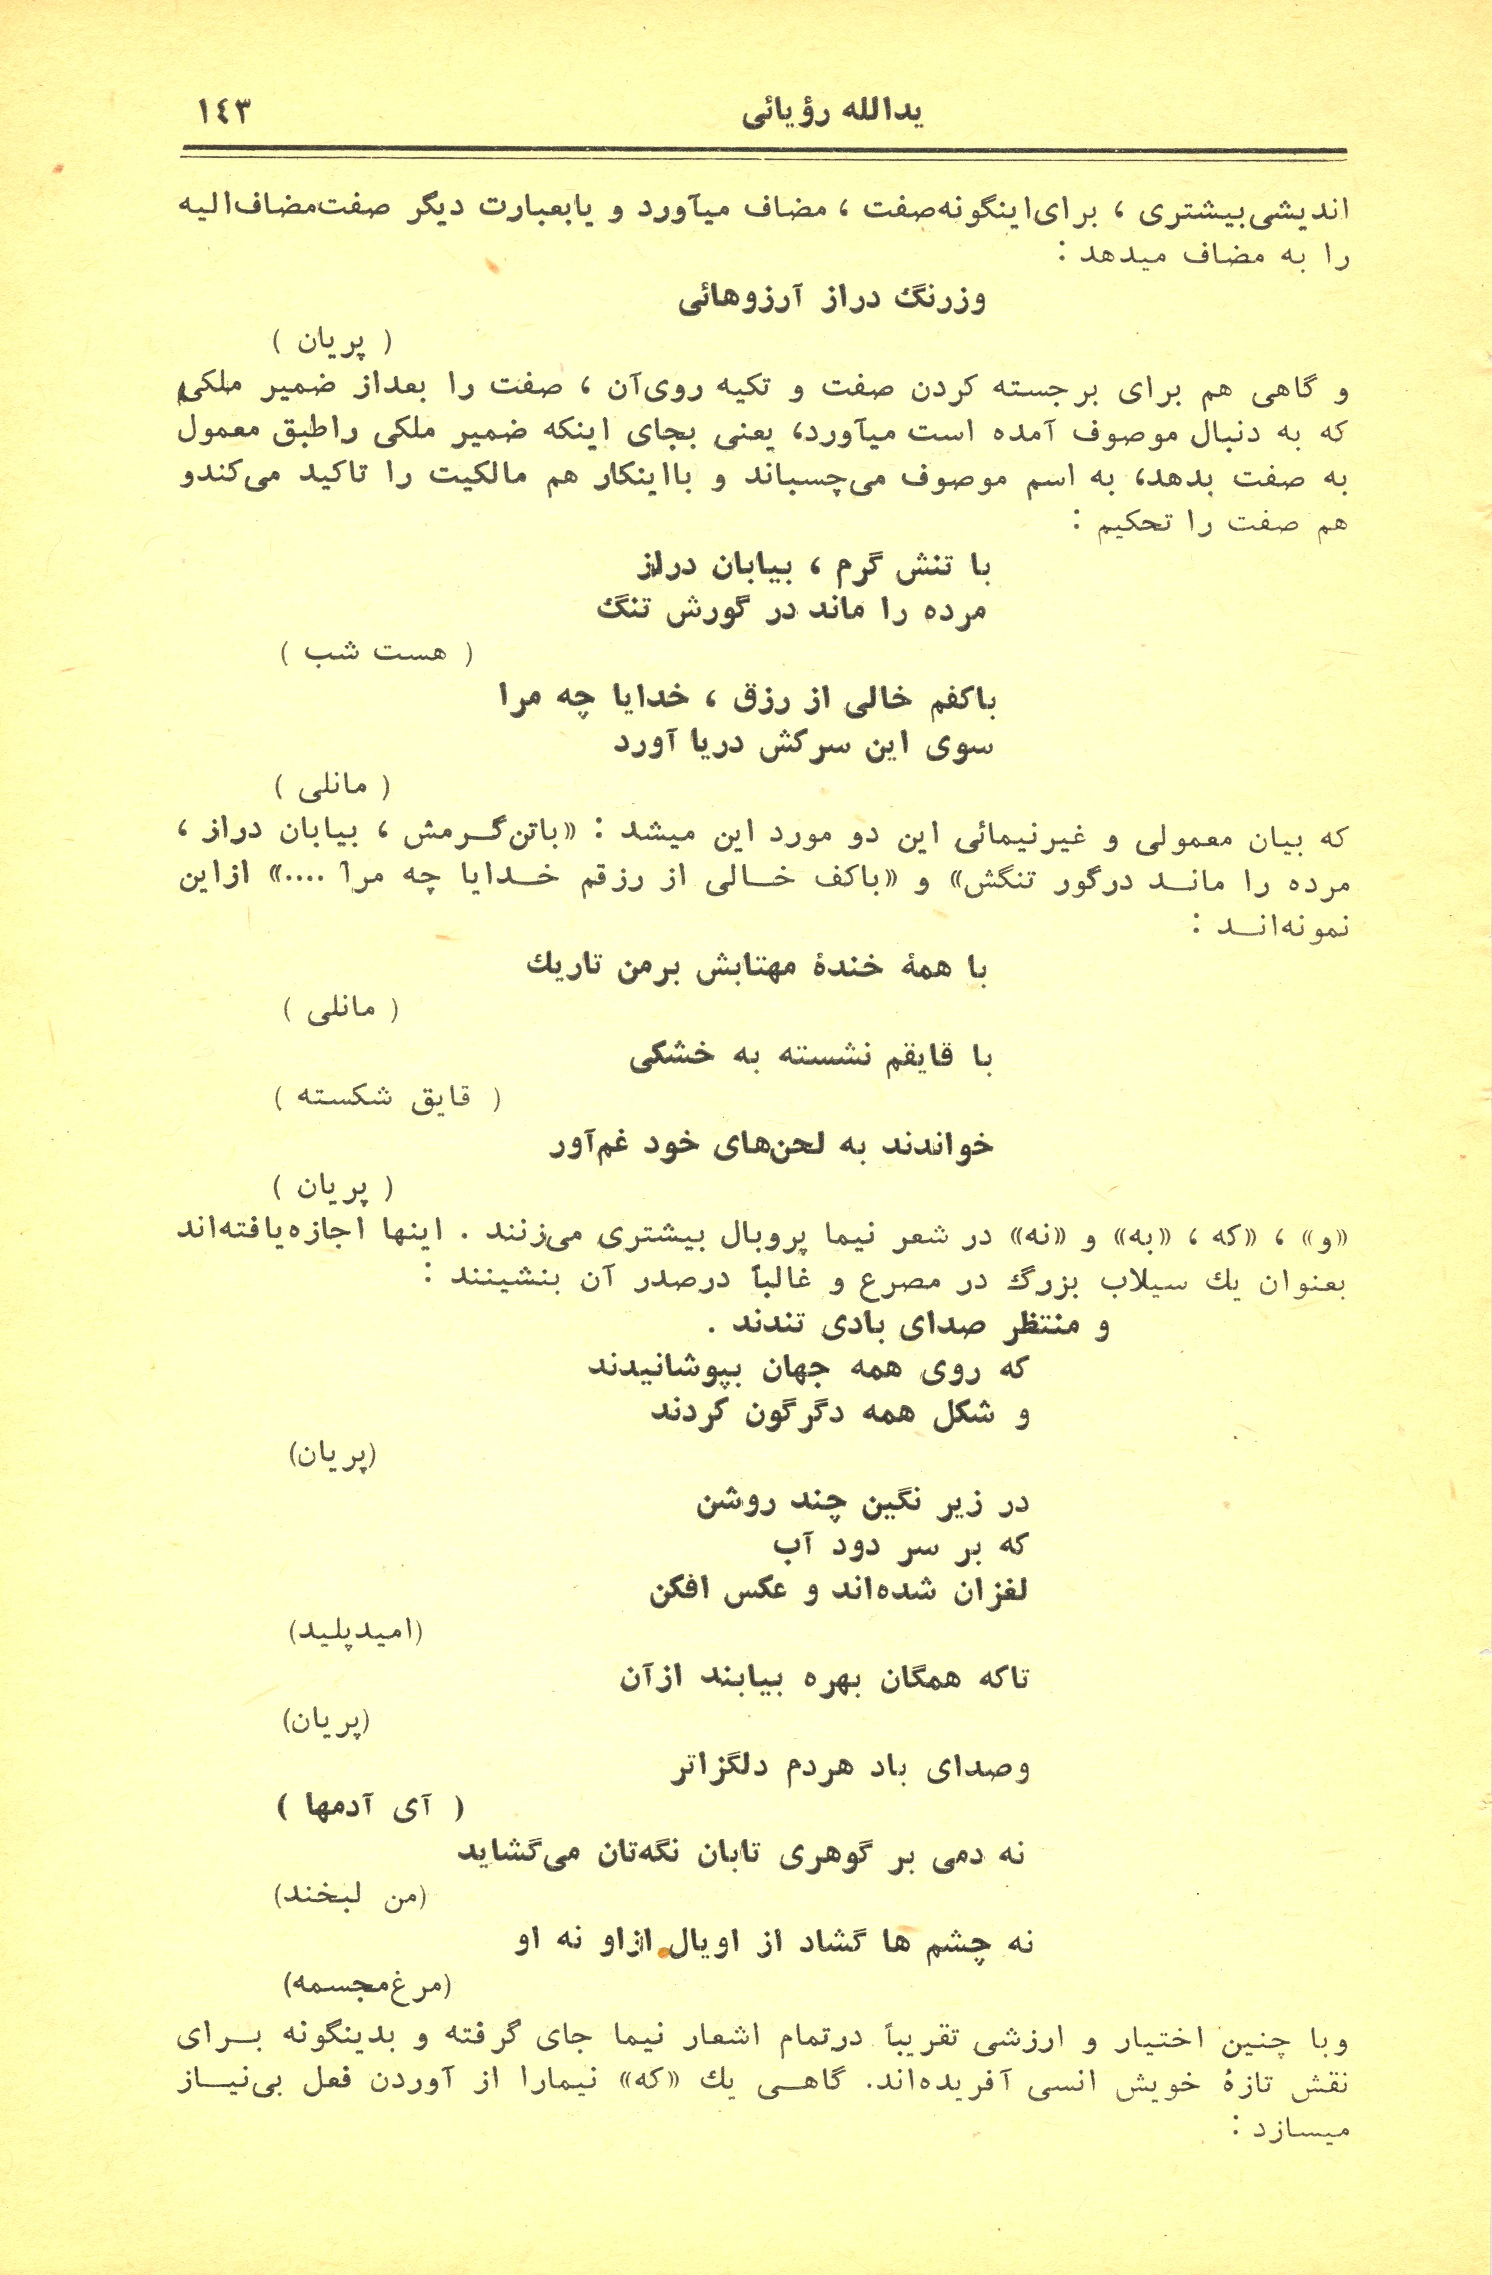 یدالله رؤیائی
١٤٣
اندیشی‌بیشتری ، برای‌اینگونه‌صفت ، مضاف میآورد و یابعبارت دیگر صفت‌مضاف‌الیه
را به مضاف میدهد :
وزرنگ دراز آرزوهائی
( پریان )
و گاهی هم برای برجسته کردن صفت و تکیه روی‌آن ، صفت را بعداز ضمیر ملکی
که به دنبال موصوف آمده است میآورد، یعنی بجای اینکه ضمیر ملکی راطبق معمول
به صفت بدهد، به اسم موصوف می‌چسباند و بااینکار هم مالکیت را تاکید می‌کندو
هم صفت را تحکیم :
با تنش گرم ، بیابان دراز
مرده را ماند در گورش تنگ
( هست شب )
باکفم خالی از رزق ، خدایا چه مرا
سوی این سرکش دریا آورد
( مانلی )
که بیان معمولی و غیرنیمائی این دو مورد این میشد : «باتن‌گـرمش ، بیابان دراز ،
مرده را مانـد درگور تنگش» و «باکف خـالی از رزقم خـدایا چه مرآ ....» ازاین
نمونه‌انـد :
با همهٔ خندهٔ مهتابش برمن تاریك
( مانلی )
با قایقم نشسته به خشکی
( قایق شکسته )
خواندند به لحن‌های خود غم‌آور
( پریان )
«و» ، «که ، «به» و «نه» در شعر نیما پروبال بیشتری می‌زنند . اینها اجازه‌یافته‌اند
بعنوان یك سیلاب بزرگ در مصرع و غالباً درصدر آن بنشینند :
و منتظر صدای بادی تندند .
که روی همه جهان بپوشانیدند
و شکل همه دگرگون کردند
(پریان)
در زیر نگین چند روشن
که بر سر دود آب
لغزان شده‌اند و عکس افکن
(امیدپلید)
تاکه همگان بهره بیابند ازآن
(پریان)
وصدای باد هردم دلگزاتر
( آی آدمها )
نه دمی بر گوهری تابان نگه‌تان می‌گشاید
(من لبخند)
نه چشم ها گشاد از اوبال ازاو نه او
(مرغ‌مجسمه)
وبا چنین اختیار و ارزشی تقریباً درتمام اشعار نیما جای گرفته و بدینگونه بـرای
نقش تازهٔ خویش انسی آفریده‌اند. گاهـی یك «که» نیمارا از آوردن فعل بی‌نیـاز
میسازد :